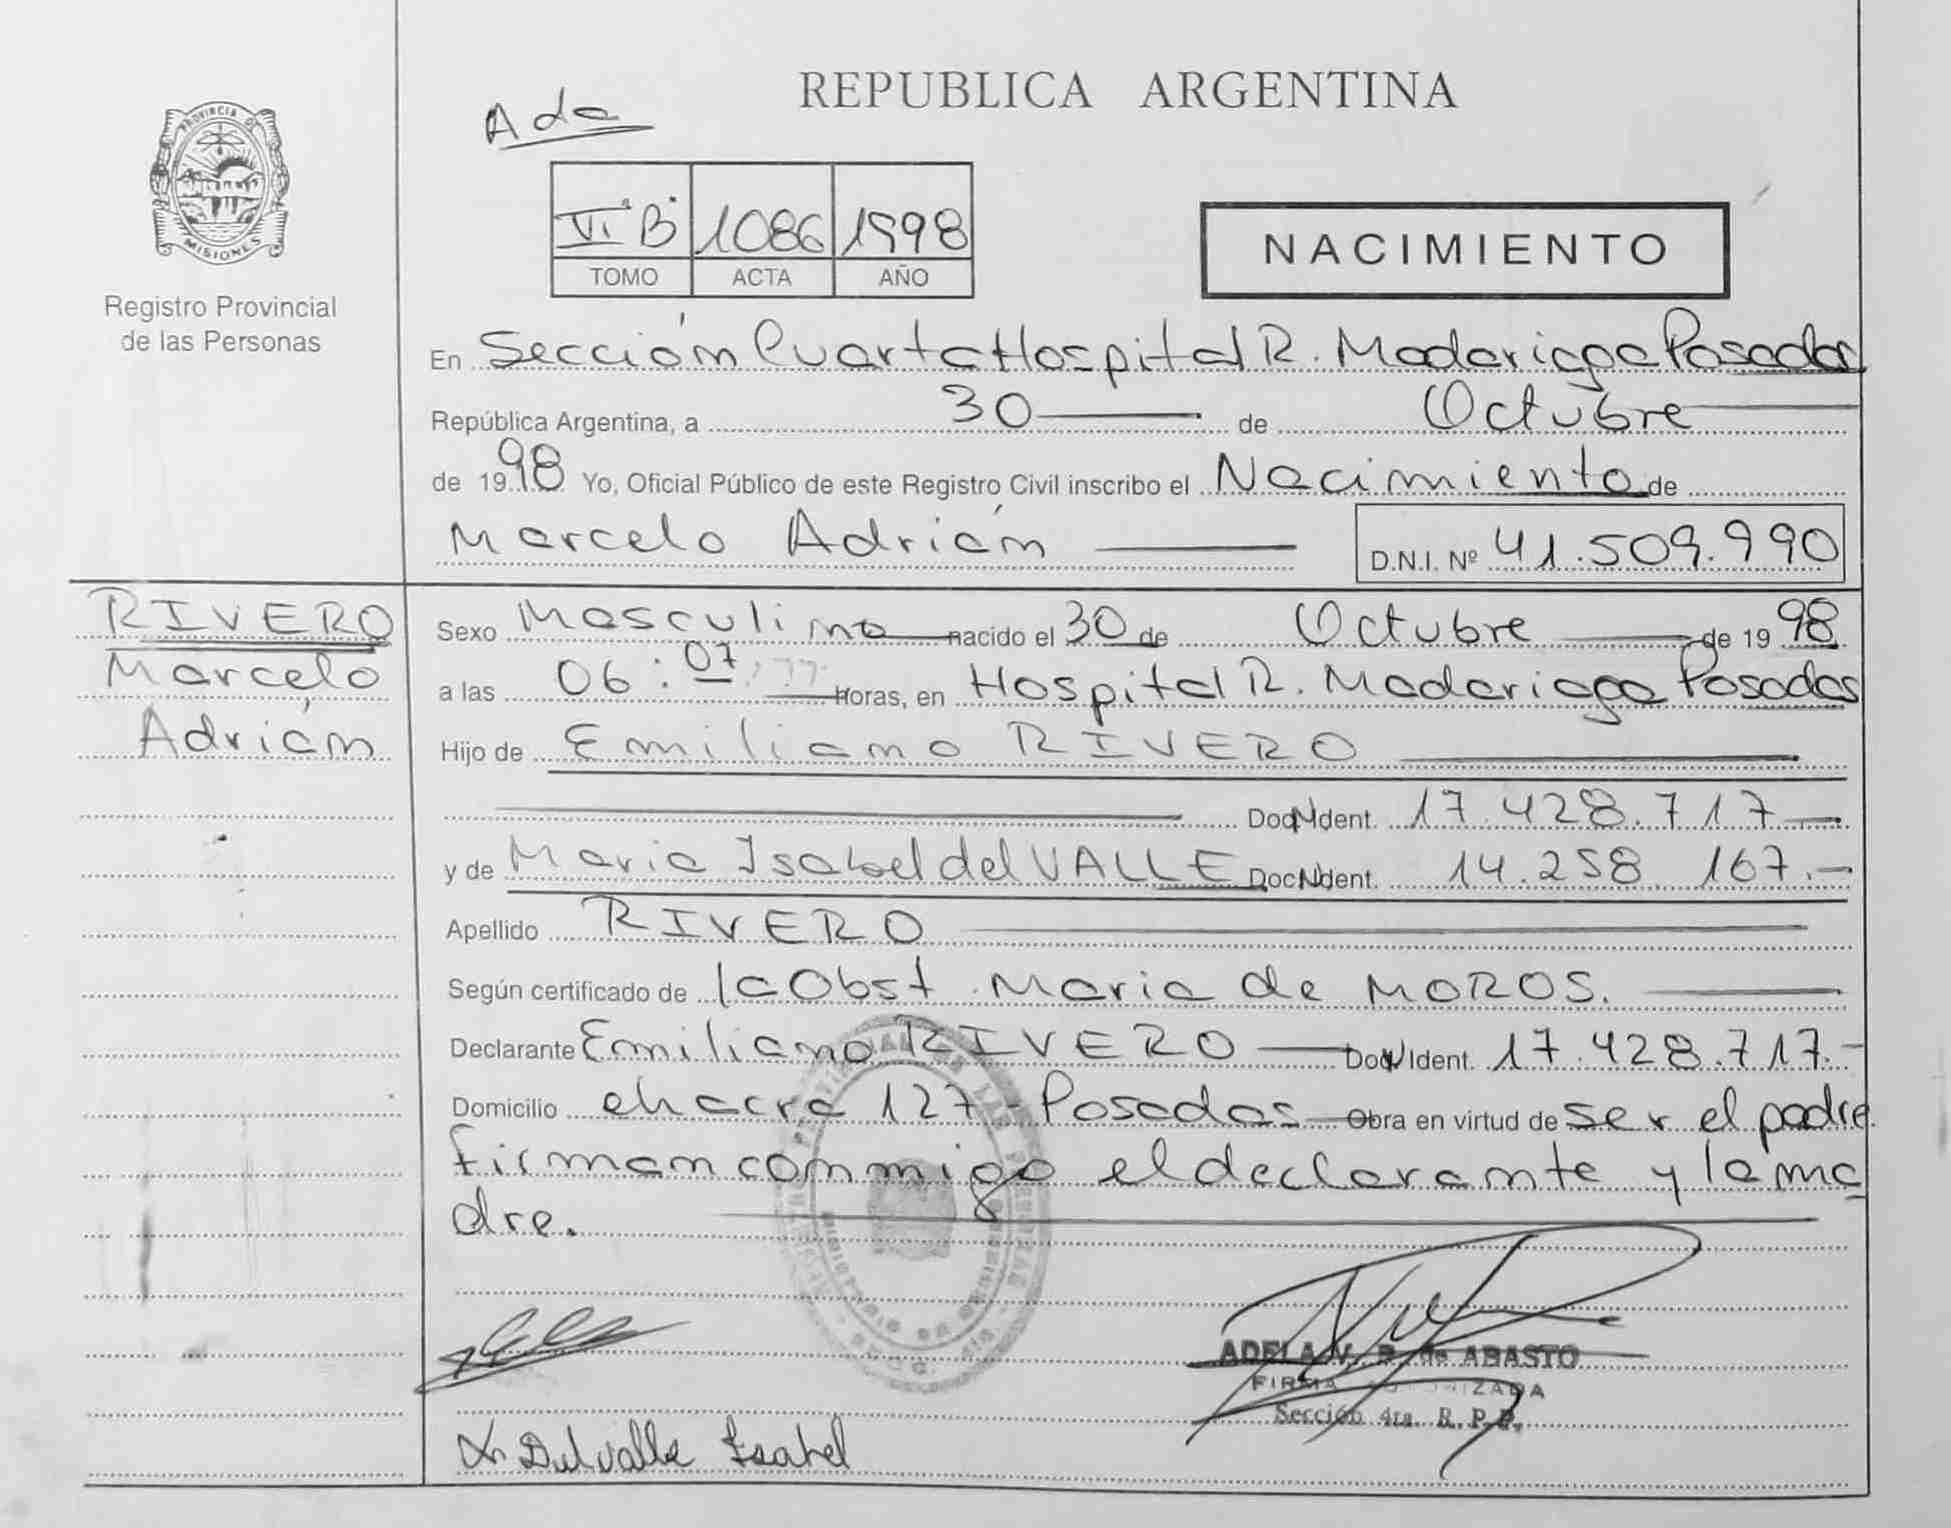 REPUBLICA ARGENTINA
Ada
PROVINCIA DE
MISIONES
Registro Provincial
de las Personas
VIº "B" 1086 1998
TOMO ACTA AÑO
NACIMIENTO
En Sección Cuarta Hospital R. Madariaga Posadas
República Argentina, a 30 de Octubre
de 1998 Yo, Oficial Público de este Registro Civil inscribo el Nacimiento de
Marcelo Adrián D.N.I. Nº 41.509.990
RIVERO
Marcelo
Adrián
Sexo Masculino nacido el 30 de Octubre de 1998
a las 06:07 Horas, en Hospital R. Madariaga Posadas
Hijo de Emiliano RIVERO
Doc Ident. 17.428.717.-
y de Maria Isabel del VALLE Doc Ident. 14.258.167.-
Apellido RIVERO
Según certificado de la Obst. Maria de MOROS.
Declarante Emiliano RIVERO Doc Ident. 17.428.717.-
Domicilio chacra 127 - Posadas Obra en virtud de ser el padre
firman conmigo el declarante y la ma
dre.
ADELA V. B. de ABASTO
FIRMA AUTORIZADA
Sección 4ta. R. P. P.
Delvalle Isabel